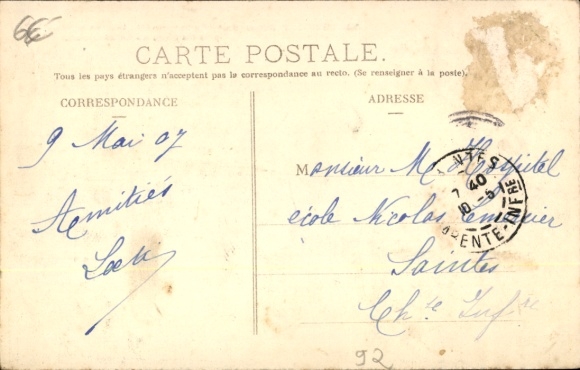 6€
CARTE POSTALE.
Tous les pays étrangers n'acceptent pas la correspondance au recto. (Se renseigner à la poste).
CORRESPONDANCE
ADRESSE
9 Mai 07
Amitiés
Monsieur
école Nicolas Lemercier
Saintes
Ch.te Inf.re
NTES
7 40
10 -5
RENTE-INFRE
92